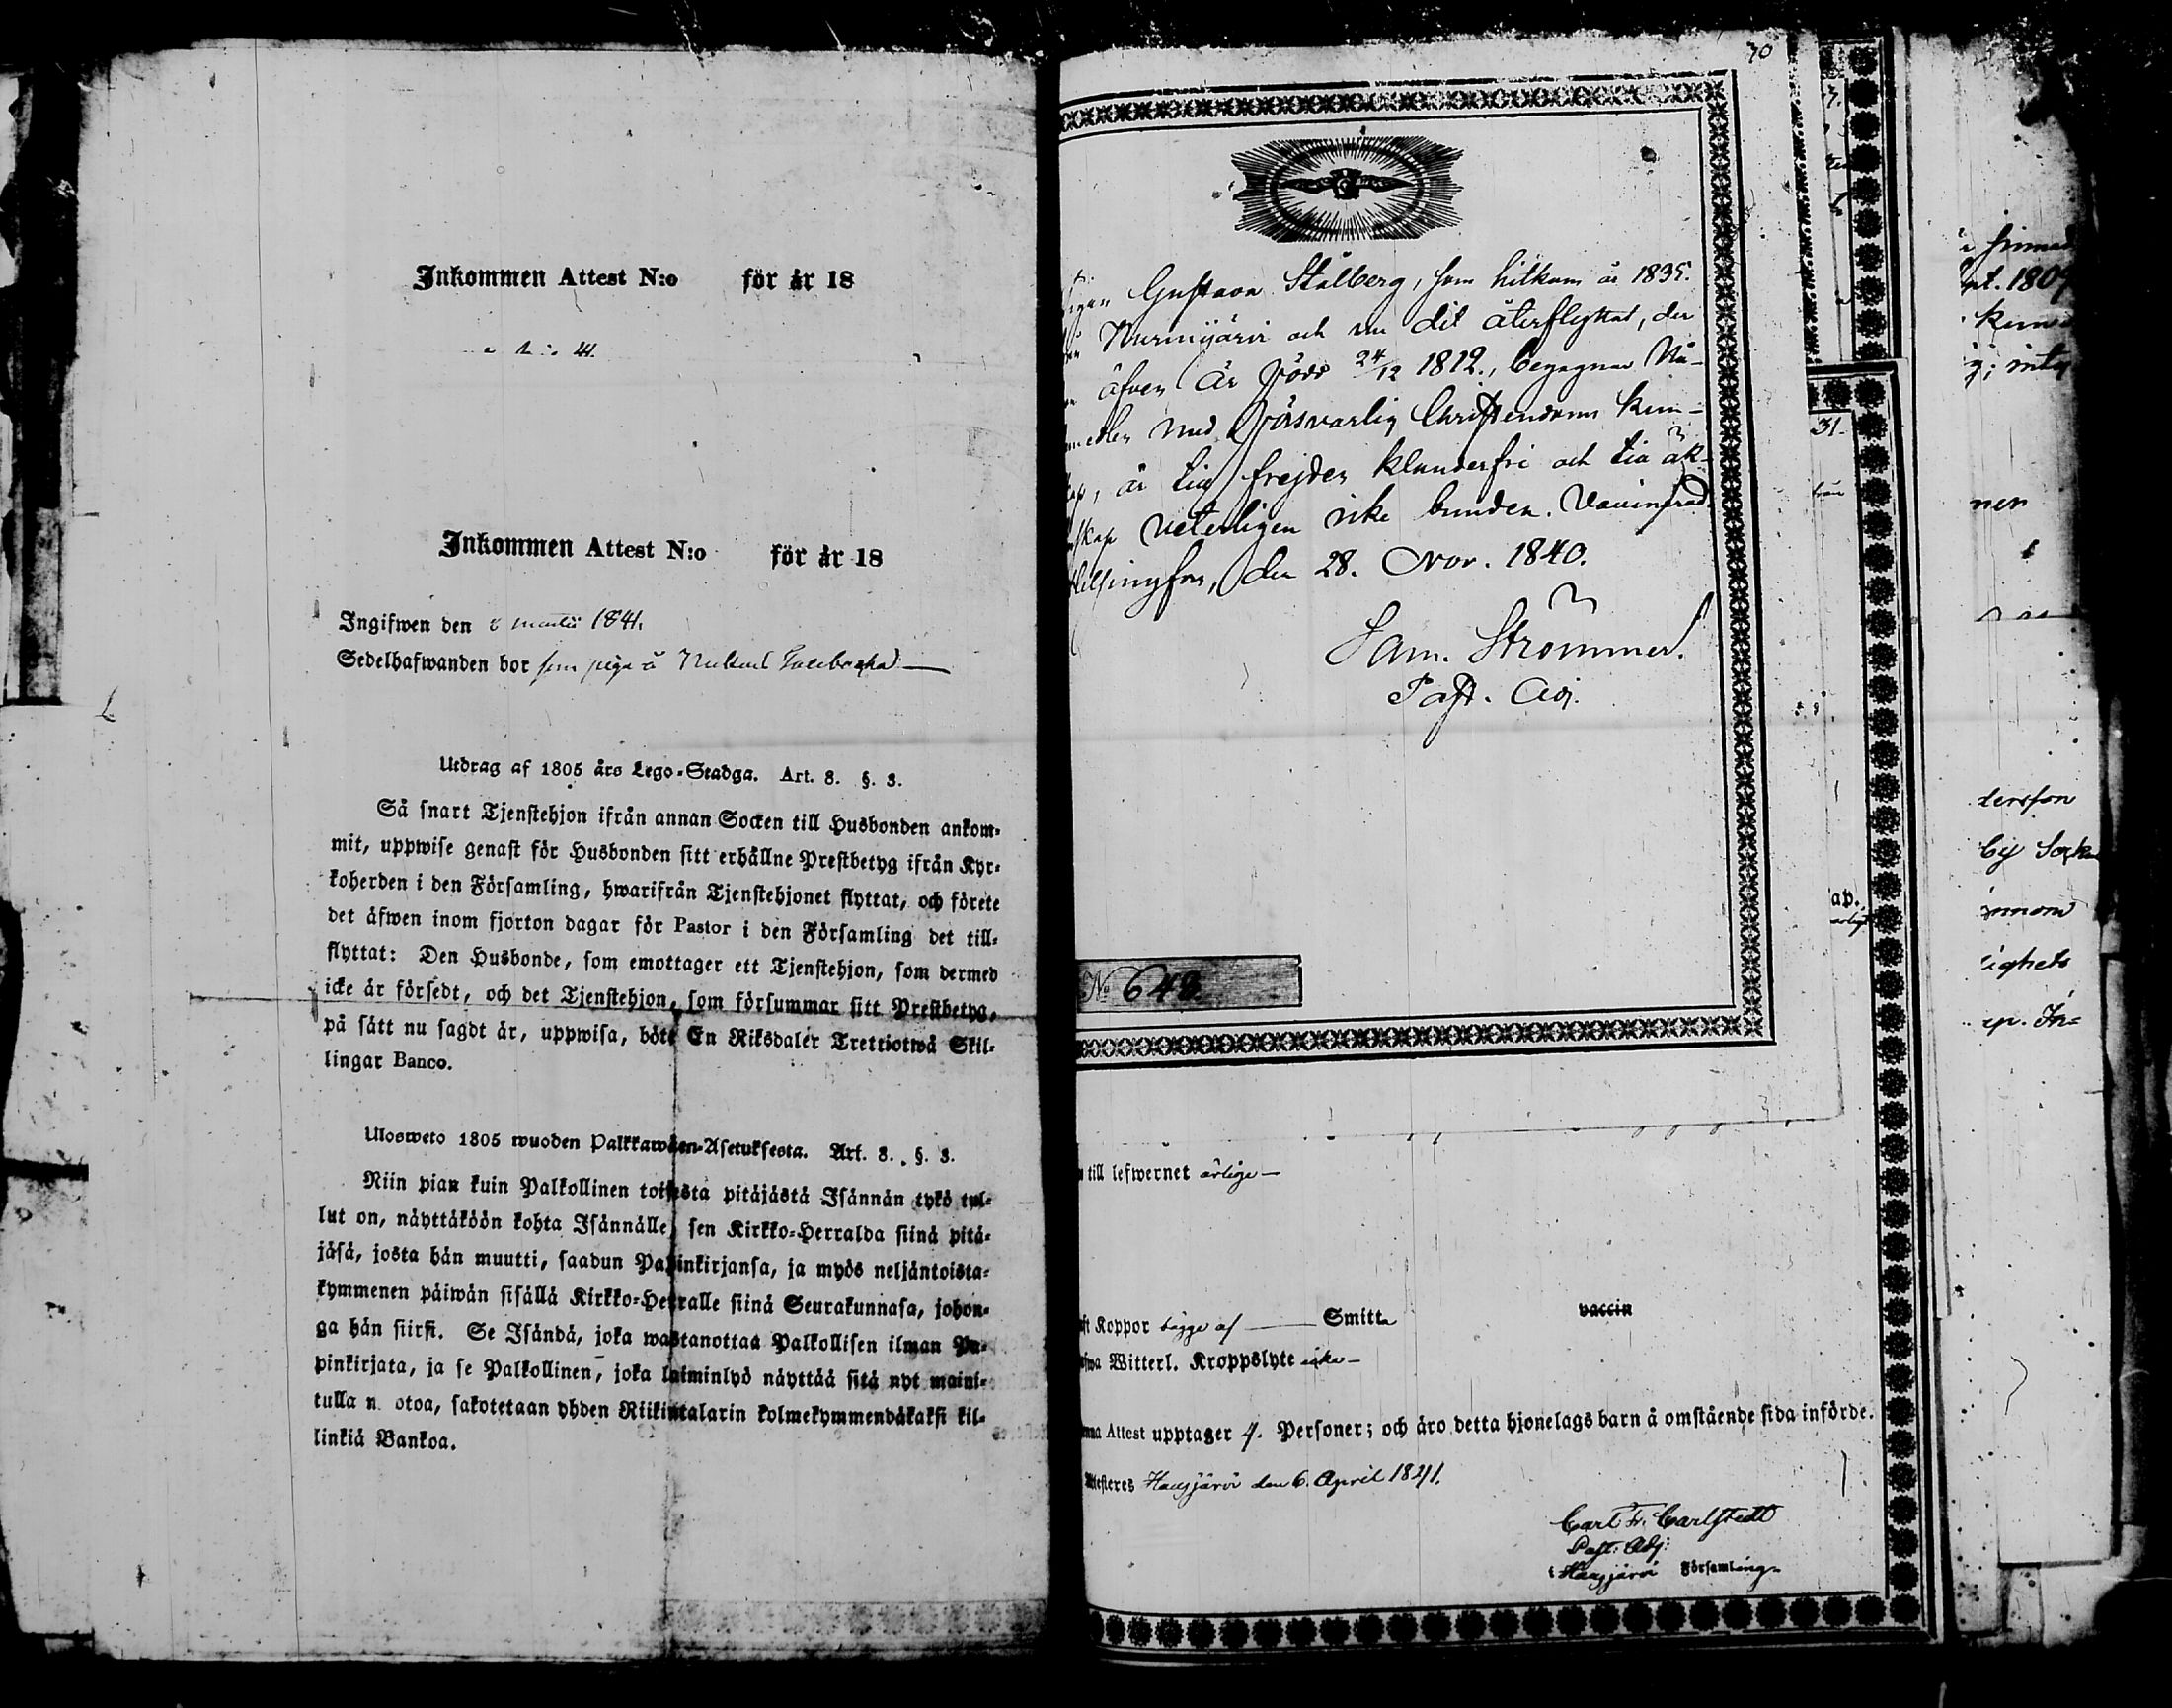 Inkommen Attest N:o för år 18
41.
Inkommen Attest N:o för år 18
Ingifwen den martii 1841.
Sedelhafwanden bor som piga å
Utdrag af 1805 års Lego-Stadga. Art. 8. §. 3.
Så snart Tjenstehjon ifrån annan Socken till Husbonden ankom-
mit, uppwise genast för Husbonden sitt erhållne Prestbetyg ifrån Kyr-
koherden i den Församling, hwarifrån Tjenstehjonet flyttat, och förete
det äfwen inom fjorton dagar för Pastor i den Församling det till-
flyttat: Den Husbonde, som emottager ett Tjenstehjon, som dermed
icke är försedt, och det Tjenstehjon, som försummar sitt Prestbetyg,
på sätt nu sagdt är, uppwisa, böte En Riksdaler Trettiotwå Skil-
lingar Banco.
Ulosweto 1805 wuoden Palkkawäen-Asetuksesta. Art. 8. §. 3.
Niin pian kuin Palkollinen toisesta pitäjästä Isännän tykö tul-
lut on, näyttäköön kohta Isännälle, sen Kirkko-Herralda siinä pitä-
jäsä, josta hän muutti, saadun Papinkirjansa, ja myös neljäntoista-
kymmenen päiwän sisällä Kirkko-Herralle siinä Seurakunnasa, johon-
ga hän siirsi. Se Isändä, joka wastanottaa Palkollisen ilman Pa-
pinkirjata, ja se Palkollinen, joka laiminlyö näyttää sitä nyt maini-
tulla n otoa, sakotetaan yhden Riikintalarin kolmekymmendäkaksi kil-
linkiä Bankoa.
70
Gustava Stålberg, som hitkom år 1835.
Nurmijärvi och nu dit återflyttat, der
äfven är född 24/12 1812., begagnar Nå-
medlen med försvarlig Christendoms kun-
skap, är till frejden klanderfri och till äk-
tenskap veterligen icke bunden. Vaccinerad.
Helsingfors, den 28. Nov. 1840.
Sam. Strömmer.
Past. Adj.
No 648.
31.
till lefwernet ärlige
Koppor begge af Smitta vaccin
Witterl. Kroppslyte icke
Attest upptager 4. Personer; och äro detta hjonelags barn å omstående sida införde.
Attesteres Hausjärvi den 6. April 1841.
Carl Fr. Carlstedt
Past: Adj:
i Hausjärvi Församling
1809
nen
dersson
by Sock
innom